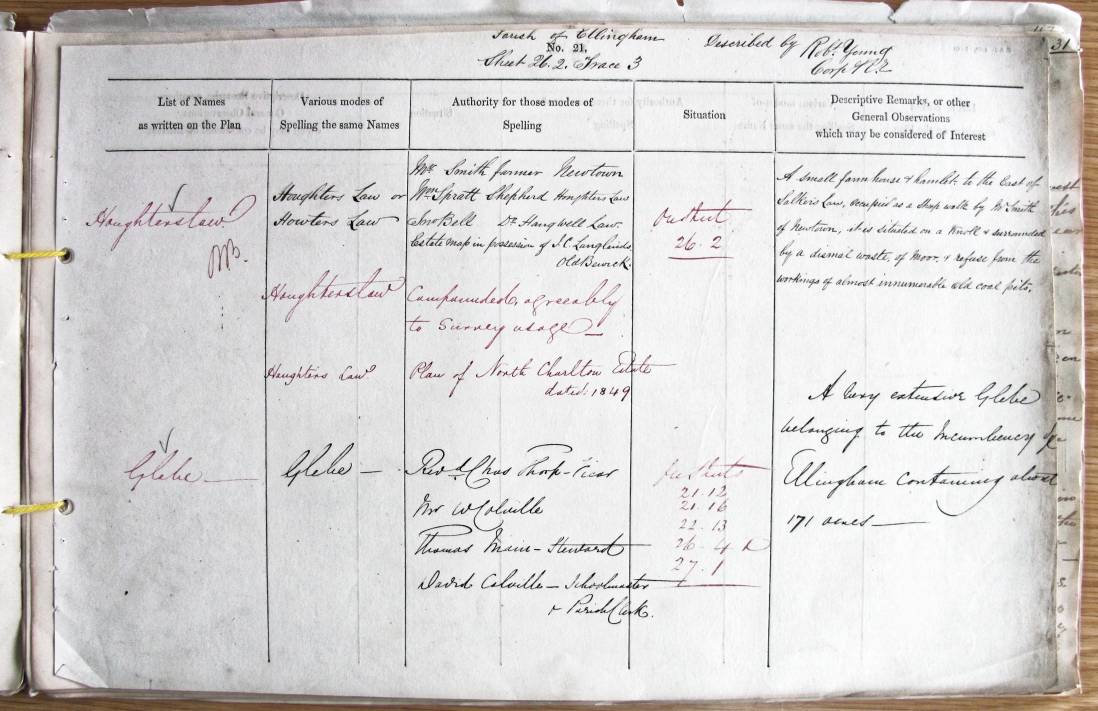 Parish of Ellingham
No. 21,
Sheet 26.2. Trace 3
Described by Robt. Young
Corpl R.E
31
List of Names
as written on the Plan
Various modes of
Spelling the same Names
Authority for those modes of
Spelling
Situation
Descriptive Remarks, or other
General Observations
which may be considered of Interest
Houghterslaw
Houghters Law or
Howters Law
Mr. Smith farmer Newtown
Wm Spratt Shepherd Houghters Law
Jno Bell Do Hangwell Law.
Estate Map in possession of J.C. Langlands
Old Bewick.
On Shut
26.2
A small farm house & hamlet to the East of
Salkers Law, occupied as a Sheep walk by Mr Smith
of Newtown, it is situated on a Knoll & surrounded
by a dismal waste, of Moor, & refuse from the
workings of almost innumerable old coal pits.
Houghterslaw
Compounded, agreeably
to Survey usage —
Houghters Law
Plan of North Charlton Estate
dated: 1849
Glebe —
Glebe —
Revd. Chas Thorp - Vicar
Mr W Colville
Thomas Main - Steward
David Colville — Schoolmaster
& Parish Clerk.
21.12
21.16
22.13
26.4
27.1
A very extensive Glebe
belonging to the Incumbency of
Ellingham containing about
171 acres —